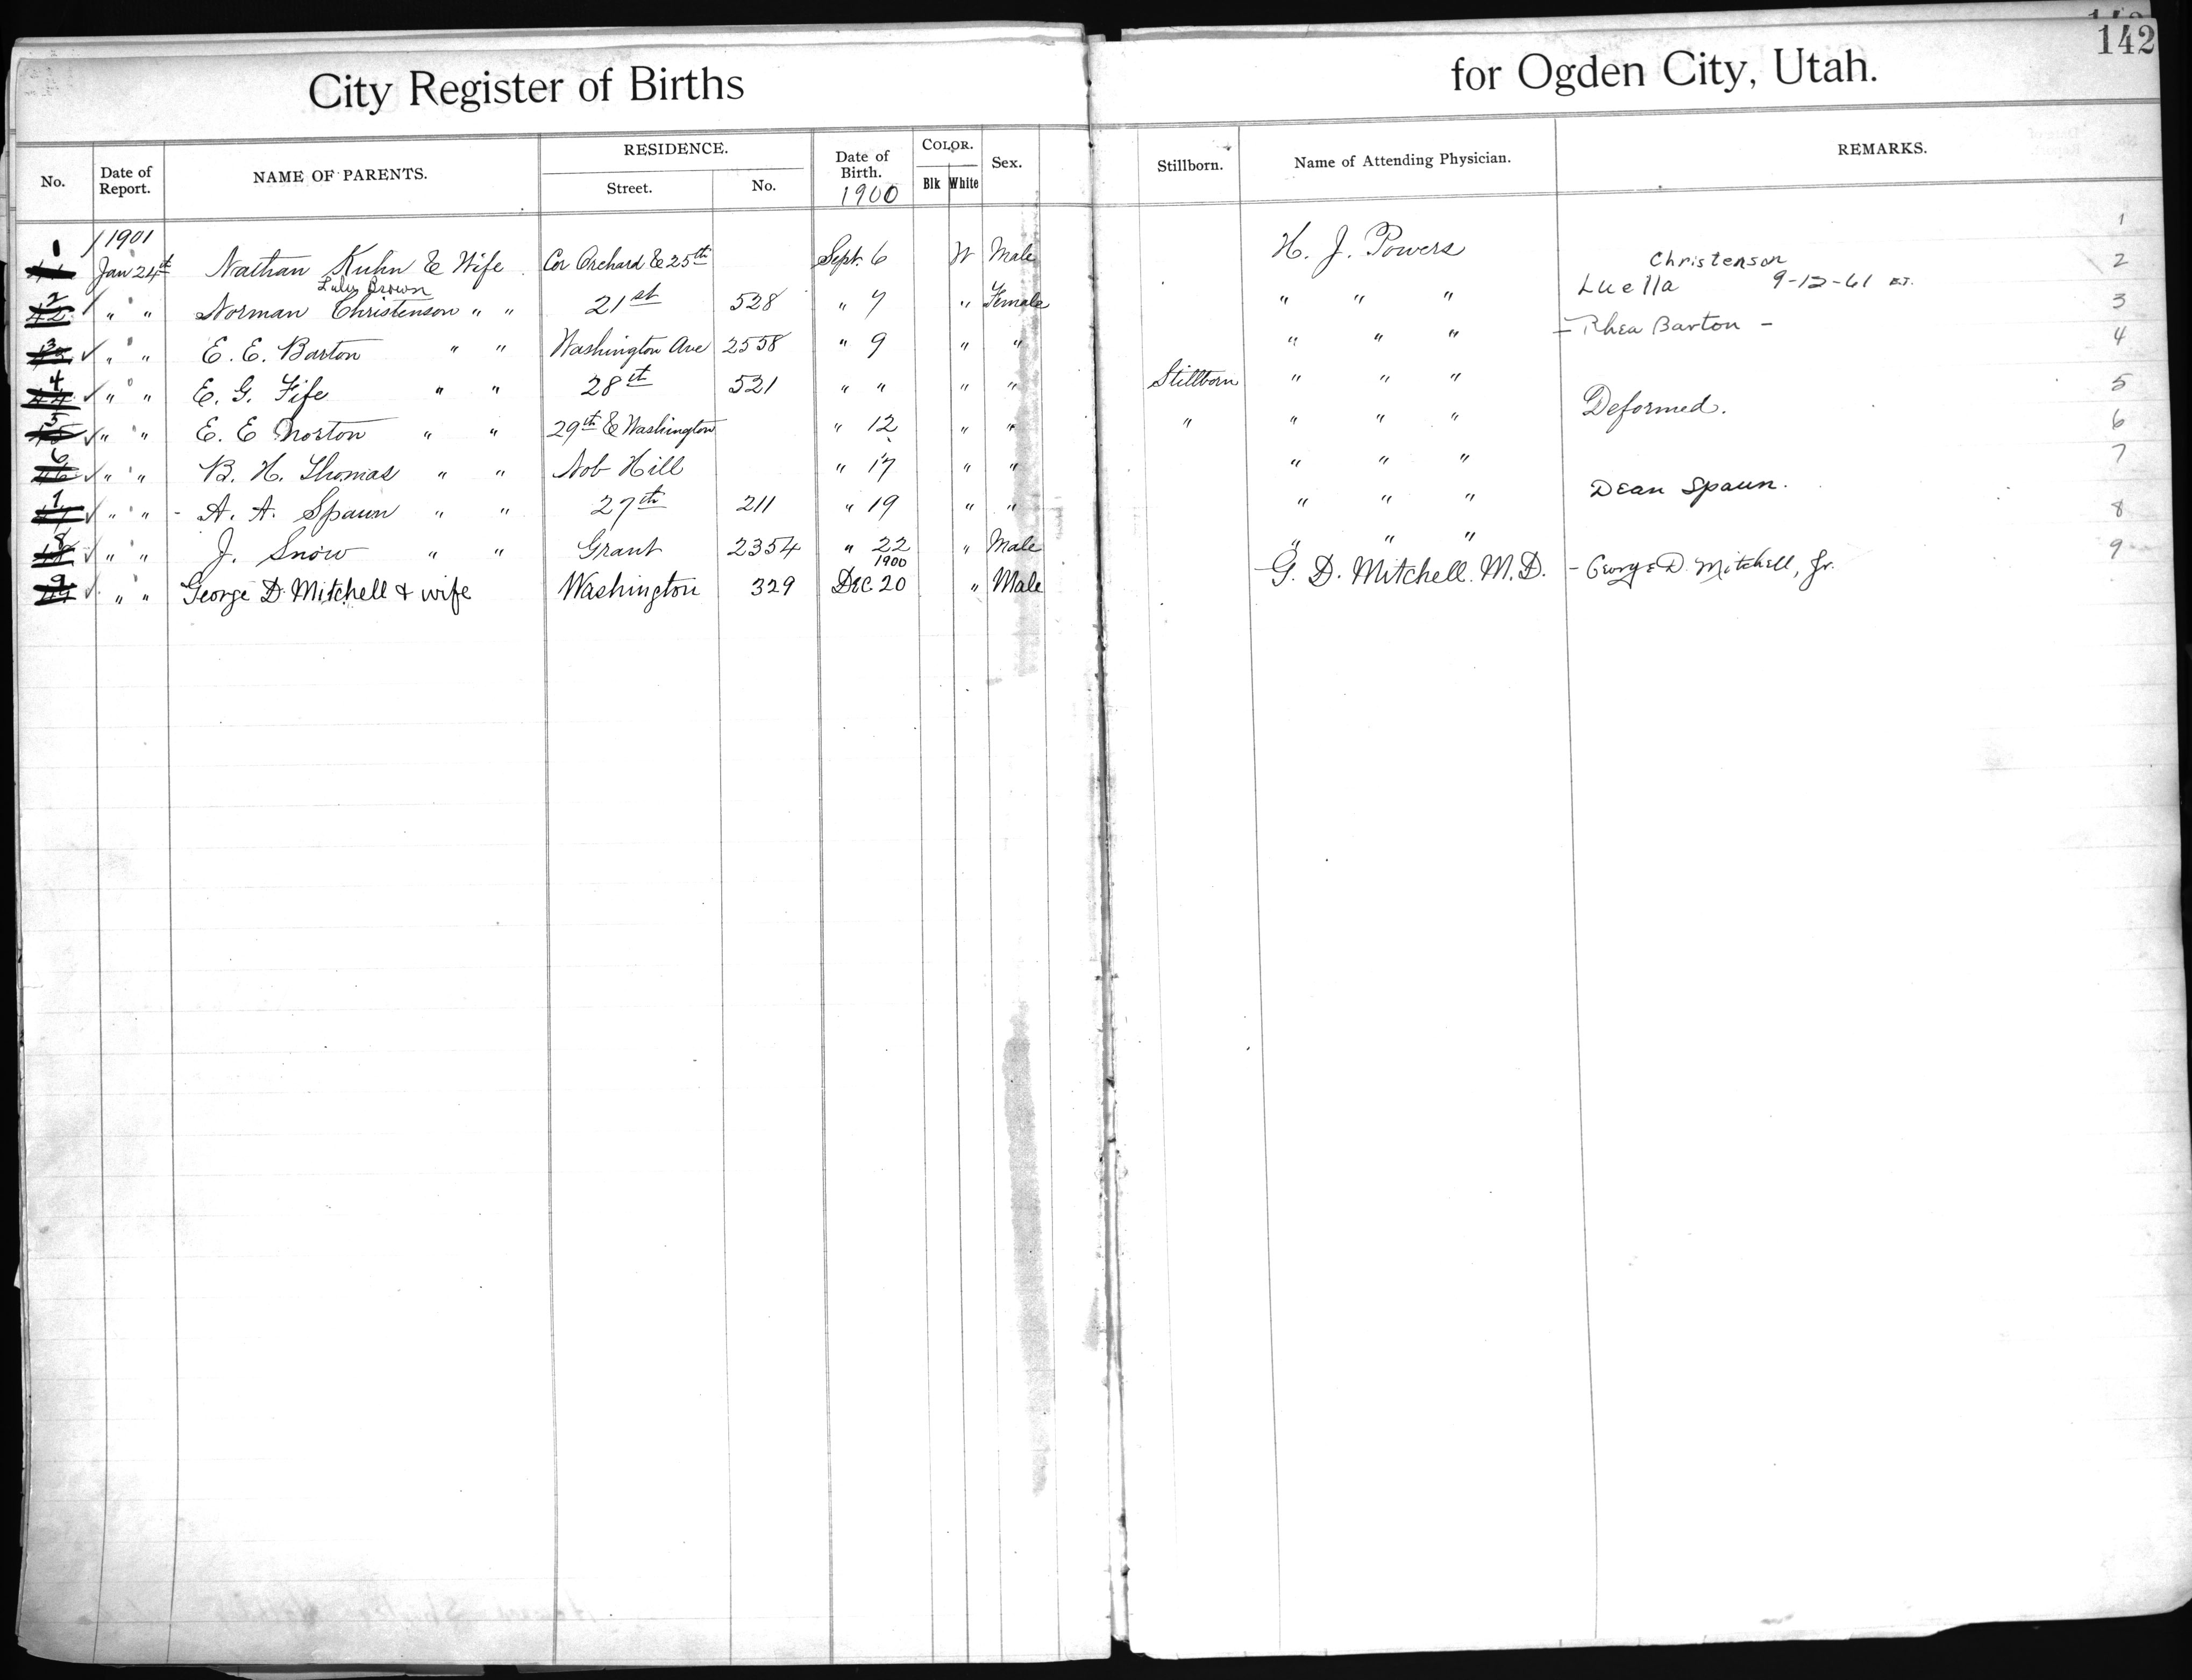 142
City Register of Births for Ogden City, Utah.
No. Date of Report. NAME OF PARENTS. RESIDENCE. Street. No. Date of Birth. 1900 COLOR. Blk White Sex. Stillborn. Name of Attending Physician. REMARKS.
1901
1 Jan 24th Nathan Kuhn & Wife Cor Orchard & 25th Sept. 6 W Male H. J. Powers 1
Brown Christenson 2
2 " " Norman Christenson " " 21st 528 " 7 " Female " " " Luella 9-12-61 3
3 " " E. E. Barton " " Washington Ave 2558 " 9 " " " " " - Rhea Barton - 4
4 " " E. G. Fife " " 28st 521 " " " " Stillborn " " " 5
5 " " E. E Norton " " 29th & Washington " 12 " " " " " " Deformed. 6
6 " " B. H. Thomas " " Nob Hill " 17 " " " " " 7
7 " " - A. A. Spaun " " 27th 211 " 19 " " " " " Dean Spaun. 8
8 " " J. Snow " " Grant 2354 " 22 " Male " " " 9
1900
9 " " George D. Mitchell & wife Washington 329 Dec 20 " Male G. D. Mitchell. M.D. - George D. Mitchell, Jr.